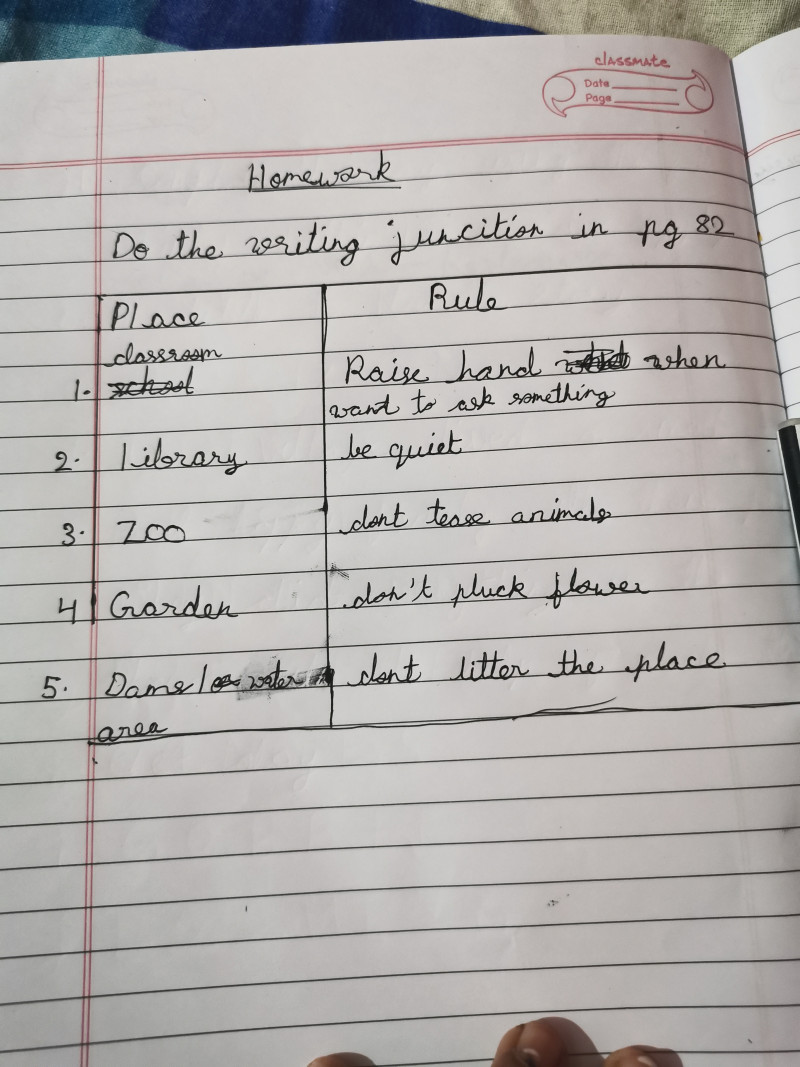 classmate
Date
Page
Homework
Do the writing juncition in pg 82
Place Rule
classroom
1. school Raise hand when
want to ask something
2. Library be quiet
3. Zoo dont tease animals
4 Garden don't pluck flower
5. Dams/ water dont litter the place
area